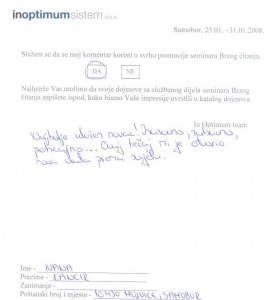 inoptimumsistem d.o.o.
Samobor, 25.01. –31.01.2008.
Slažem se da se moj komentar koristi u svrhu promocije seminara Brzog
čitanja.
DA NE
Najljepše Vas molimo da svoje dojmove sa službenog dijela seminara Brzog
čitanja zapišete ispod, kako bismo Vaše impresije uvrstili u katalog dojmova.
In Optimum team
Najbolje uložen novac! Zabavno,
poticajno... Ovaj tečaj mi je otvorio
nova vrata prema svijetu.
Ime - IVANA
Prezime -
Zanimanje -
Poštanski broj i mjesto - 10430 , SAMOBOR